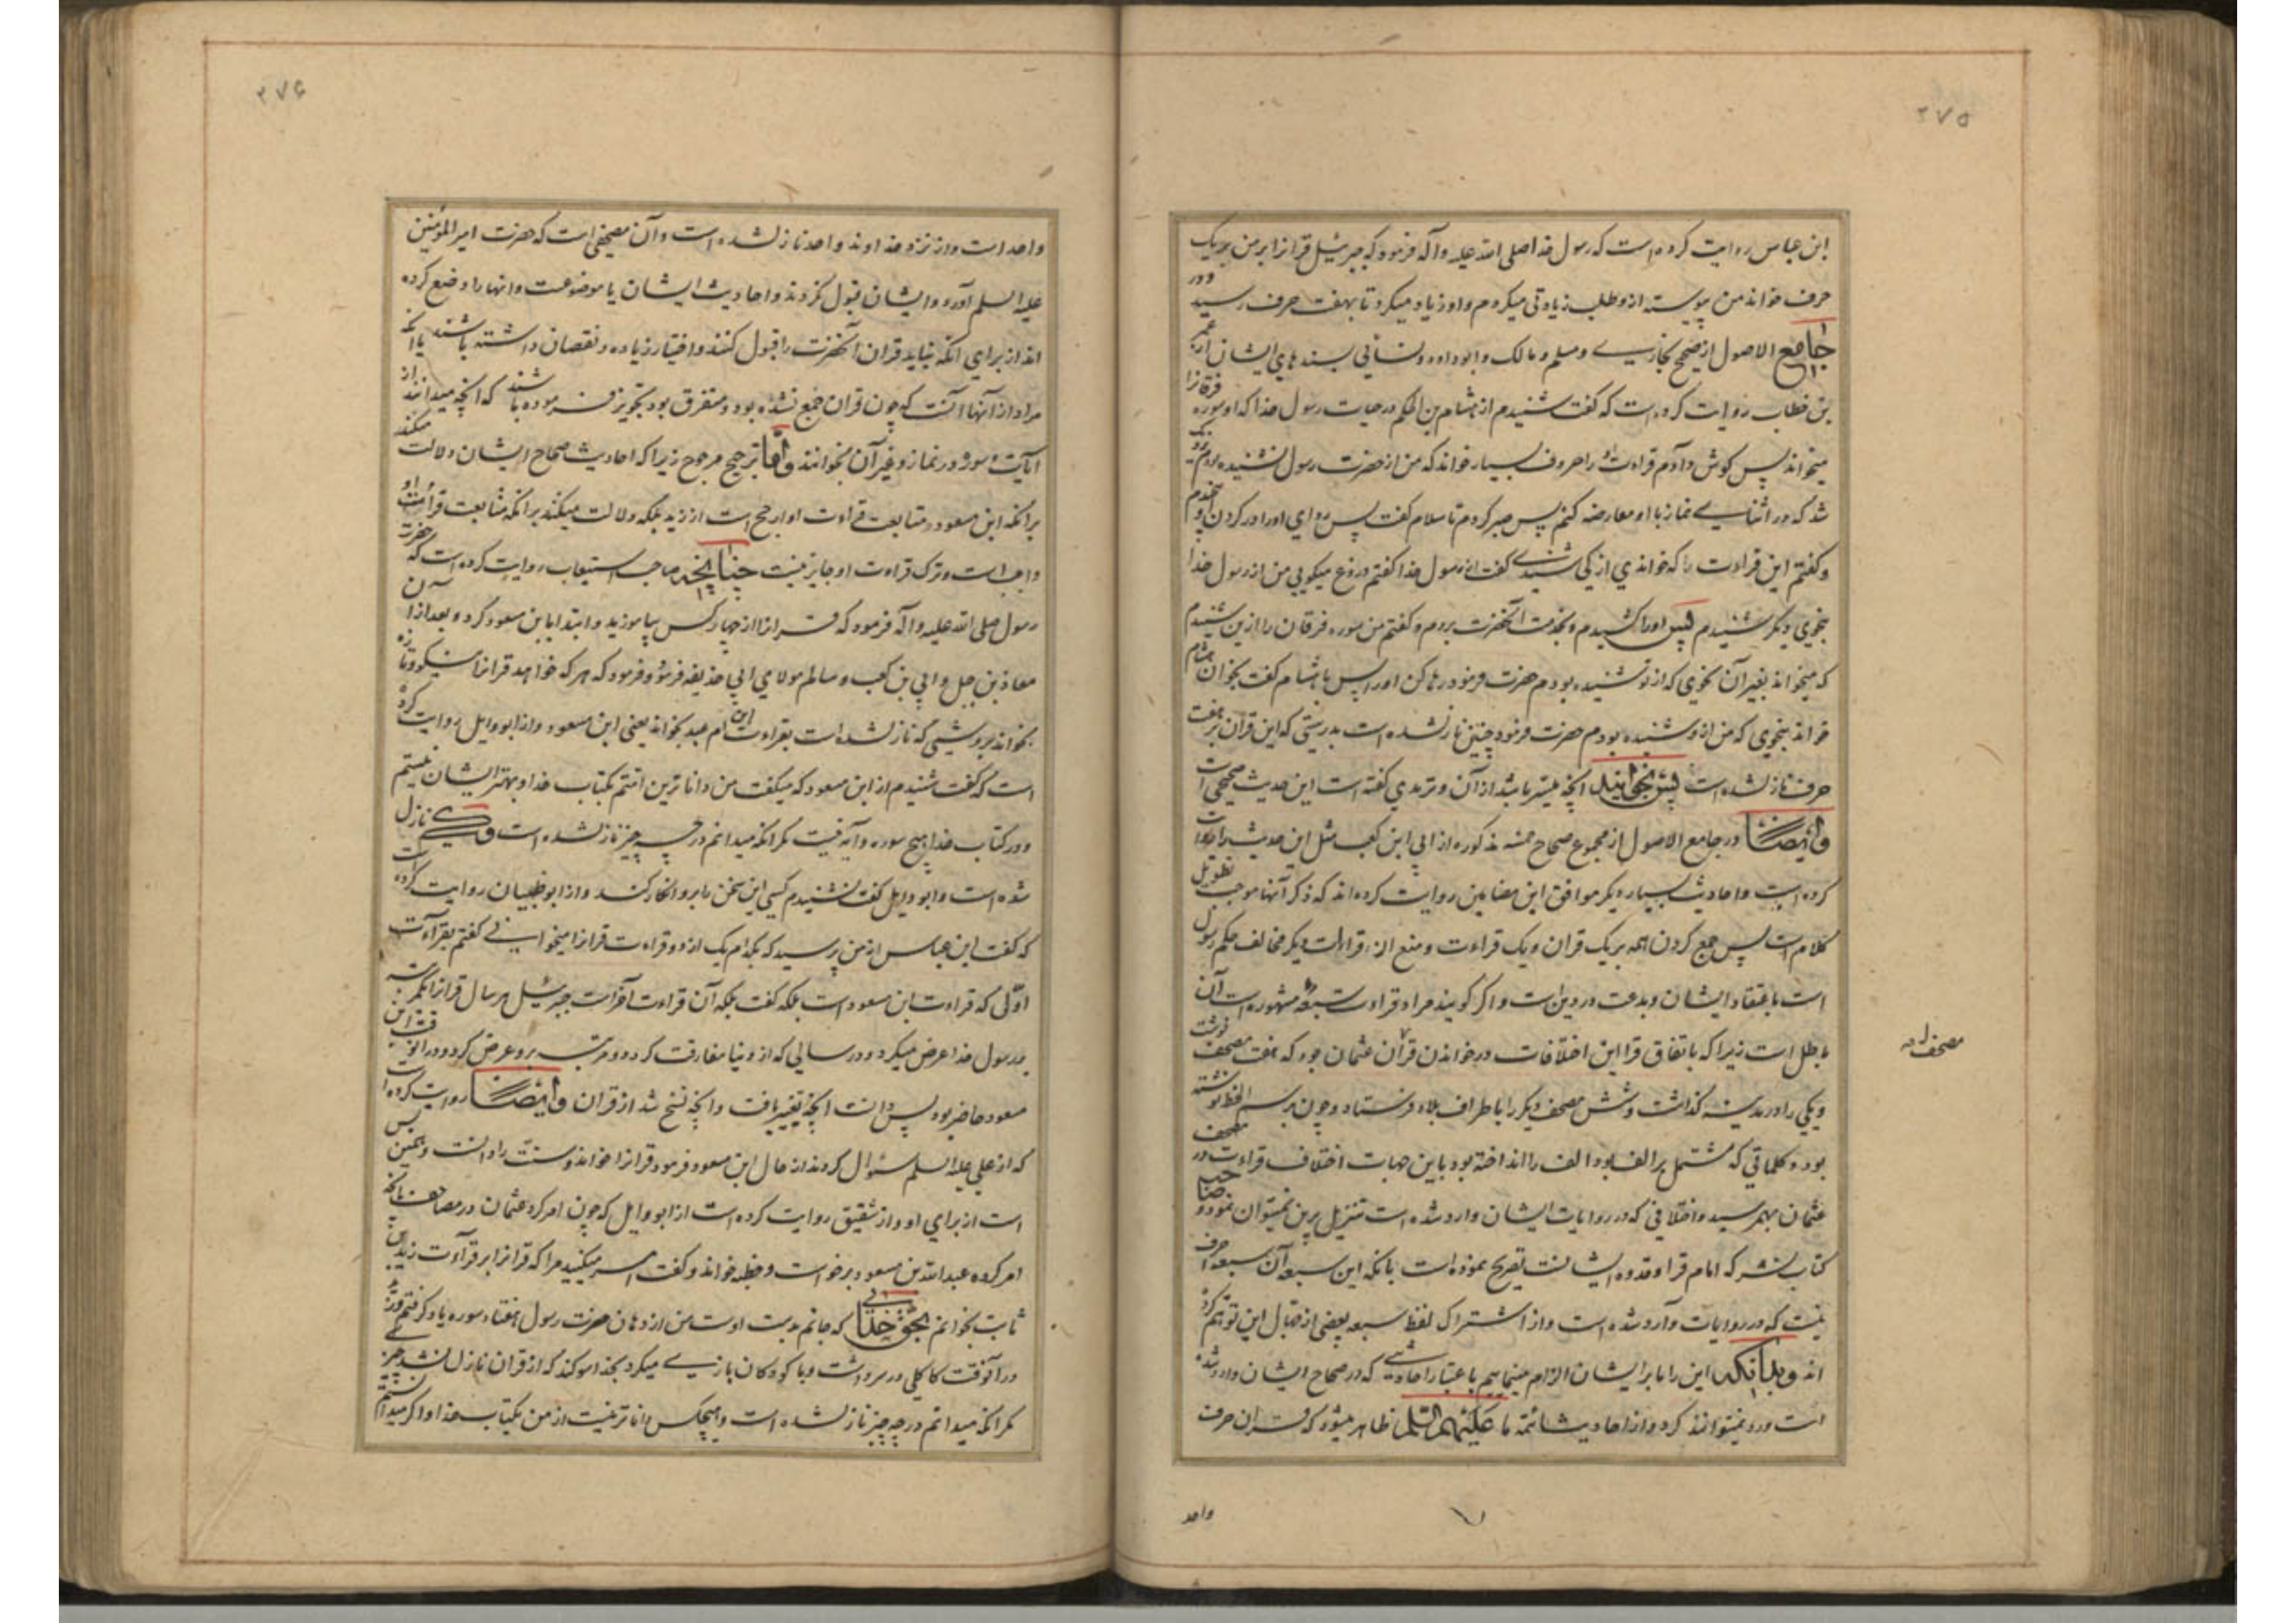 ۲۷۵
ابن عباس روایت کرده است که رسول خدا صلی الله علیه وآله فرمود که جبرئیل قرانرا بر من بریک
حرف خواند من پیوسته ازو طلب زیادتی میکردم واو زیاد میکرد تا بهفت حرف رسید ودر
جامع الاصول از صحیح بخاری ومسلم ومالک وابوداود ونسائی بسندهای ایشان از عمر
بن خطاب روایت کرده است که گفت شنیدم از هشام بن الحکم در حیات رسول خدا که او سوره فرقانرا
میخواند پس گوش دادم قراءت او را حروف بسیار خواند که من از حضرت رسول نشنیده بودم نزدیک
شد که در اثنای نماز با او معارضه کنم پس صبر کردم تا سلام گفت پس ردای اورا در گردن
وگفتم این قراءت را که خواندی از کی شنیدی گفت از رسول خدا گفتم دروغ میگویی من از رسول خدا
بنحوی دیگر شنیدم پس اورا کشیدم وبخدمت آنحضرت بردم وگفتم من سوره فرقان را ازین شنیدم
که میخواند بغیر آن نحوی که از تو شنیده بودم حضرت فرمود رها کن اورا پس با هشام گفت بخوان هشام
خواند بنحوی که من ازو شنیده بودم حضرت فرمود چنین نازلشده است بدرستی که این قران بر هفت
حرف نازلشده است پس بخوانید انچه میسر باشد از آن وترمدی گفته است این حدیث صحیح است
وایضا در جامع الاصول از مجموع صحاح خمسه مذکوره از ابی ابن کعب مثل این حدیث را روایت
کرده است واحادیث بسیار دیگر موافق این مضامین روایت کرده اند که ذکر آنها موجب تطویل
کلام است پس جمع کردن همه بر یک قران ویک قراءت ومنع از قراءات دیگر مخالف حکم رسول
است باعتقاد ایشان وبدعت در دین است واگر گویند مراد قراءت سبعه مشهوره است آن
باطل است زیرا که باتفاق قرا این اختلافات در خواندن قرآن عثمان بود که هفت مصحف نوشت
ویکی را در مدینه گذاشت وشش مصحف دیگر را باطراف بلاد فرستاد وچون برسم الخط نوشته
بود وکلماتی که مشتمل بر الف بود الف را انداخته بود باین جهات اختلاف قراءت در مصحف
عثمان بهمرسید واختلافی که در روایات ایشان وارد شده است تنزیل برین نمیتوان نمود وصاحب
کتاب نشر که امام قرا وقدوه ایشانست تصریح نموده است بانکه این سبعه آن سبعه احرف
نیست که در روایات وارد شده است واز اشتراک لفظ سبعه بعضی از جهال این توهم کرده
اند وبدانکه این را ما بر ایشان الزام مینماییم باعتبار احادیثی که در صحاح ایشان وارد شده
است ورد نمیتوانند کرد واز احادیث ائمه ما علیهم السلم ظاهر میشود که قران حرف
مصحف
واحد
۲۷۶
واحد است واز نزد خداوند واحد نازلشده است وآن مصحفی است که حضرت امیر المؤمنین
علیه السلم آورد وایشان قبول نکردند واحادیث ایشان یا موضوعست وانها را وضع کرده
اند از برای انکه نباید قران آنحضرت را قبول کنند واختیار زیاده ونقصان داشته باشند یا انکه
مراد از آنها آنست که چون قران جمع نشده بود ومتفرق بود تجویز فرموده باشند که انچه میدانند از
آیات وسور در نماز وغیر آن بخوانند واما ترجیح مرجوح زیرا که احادیث صحاح ایشان دلالت میکند
برانکه ابن مسعود ومتابعت قراءت او ارجح است از زید بلکه دلالت میکند برانکه متابعت قرائت او
واجبست وترک قراءت او جایز نیست چنانچه صاحب استیعاب روایت کرده است که حضرت
رسول صلی الله علیه وآله فرمود که قرانرا از چهار کس بیاموزید وابتدا بابن مسعود کرد وبعد از آن
معاذ بن جبل وابی بن کعب وسالم مولای ابی حذیفه فرمود وفرمود که هر که خواهد قرانرا نیکو وتازه
بخواند بروشی که نازلشده است بقراءت ابن ام عبد بخواند یعنی ابن مسعود واز ابو وایل روایت کرده
است که گفت شنیدم از ابن مسعود که میگفت من داناترین امتم بکتاب خدا وبهتر ایشان نیستم
ودر کتاب خدا هیچ سوره وآیه نیست مگر انکه میدانم در چه چیز نازلشده است وکی نازل
شده است وابو وایل گفت نشنیدم کسی این سخن را برو انکار کند واز ابو ظبیان روایت کرده است
که گفت ابن عباس از من پرسید که بکدام یک از دو قراءت قرانرا میخوانی گفتم بقراءت
اولی که قراءت ابن مسعود است بلکه گفت بلکه آن قراءت آخرست جبرئیل هر سال قرانرا یکمرتبه
بر رسول خدا عرض میکرد ودر سالی که از دنیا مفارقت کرد دو مرتبه برو عرض کرد ودر انوقت ابن
مسعود حاضر بود پس دانست انچه تغییر یافت وانچه نسخ شد از قران وایضا روایت کرده است
که از علی علیه السلم سئوال کردند از حال ابن مسعود فرمود قرانرا خواند وسنت را دانست وهمین بس
است از برای او واز شقیق روایت کرده است از ابو وایل که چون امر کرد عثمان در مصاحف بانچه
امر کرد عبدالله بن مسعود برخواست وخطبه خواند وگفت امر میکنید مرا که قرانرا بر قرآءت زید بن
ثابت بخوانم بحق خدایی که جانم بدست اوست من از دهان حضرت رسول هفتاد سوره یاد گرفتم وزید
در آنوقت کاکلی در سر داشت وبا کودکان بازی میکرد بخدا سوگند که از قران نازل نشد چیزی
مگر انکه میدانم در چه چیز نازلشده است وهیچکس داناتر نیست از من بکتاب خدا واگر میدانستم